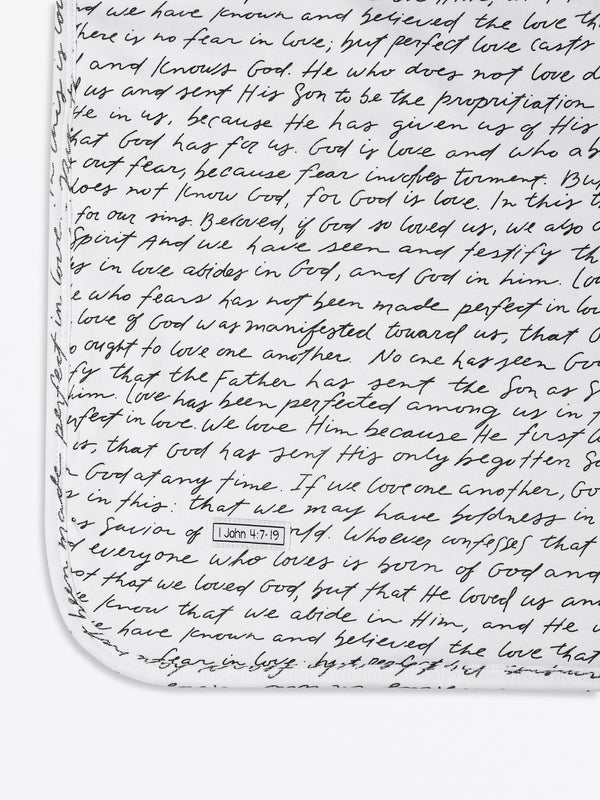 we have known and believed the love
here is no fear in love; but perfect love casts
and knows God. He who does not love
us and sent His Son to be the propritiation
He in us, because He has given us of His
that God has for us. God is love and who
out fear, because fear involves torment. But
does not know God, for God is love. In this
for our sins. Beloved, if God so loved us, we also
Spirit And we have seen and testify
in love abides in God, and God in him.
who fears has not been made perfect in
love of God was manifested toward us, that
ought to love one another. No one has seen God
fy that the Father has sent the Son as
him. Love has been perfected among us in
perfect in love. We love Him because He first
us, that God has sent His only begotten
God at any time. If we love one another,
in this: that we may have boldness in
as Savior of rld. Whoever confesses that
1 John 4:7-19
everyone who loves is born of God and
not that we loved God, but that He loved us and
know that we abide in Him, and He
have known and believed the love that
fear in love
been made perfect in love.